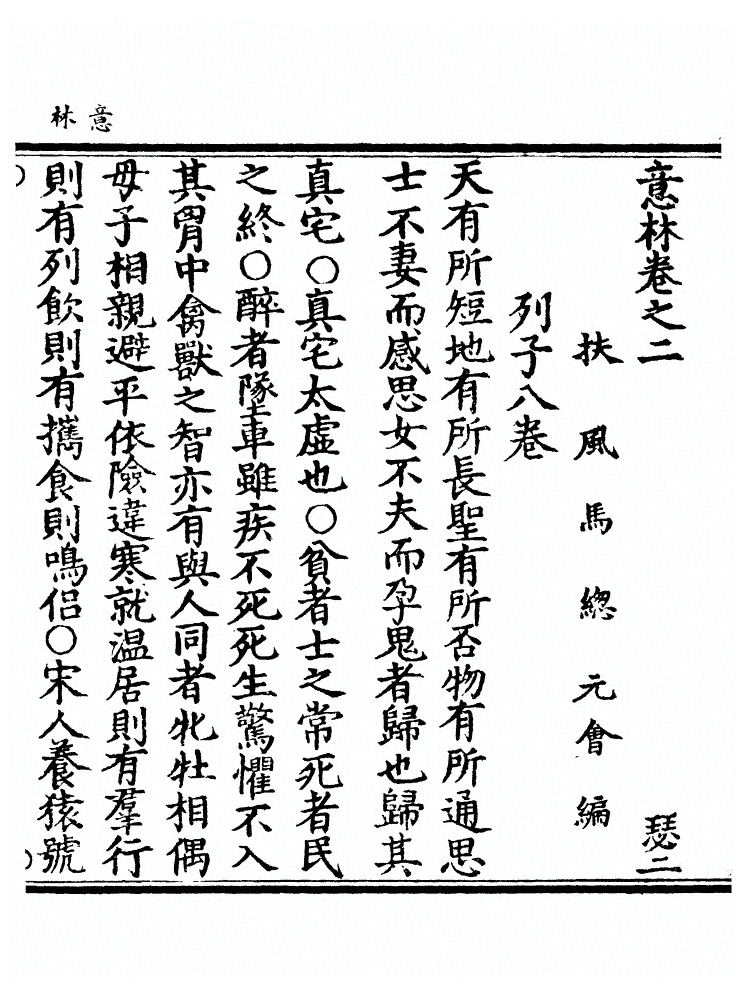 意林
意林卷之二 瑟二
扶風馬總元會編
列子八卷
天有所短地有所長聖有所否物有所通思
士不妻而感思女不夫而孕鬼者歸也歸其
真宅〇真宅太虛也〇貧者士之常死者民
之終〇醉者墜車雖疾不死死生驚懼不入
其胷中禽獸之智亦有與人同者牝牡相偶
母子相親避平依險違寒就温居則有羣行
則有列飲則有攜食則鳴侣〇宋人養猿號